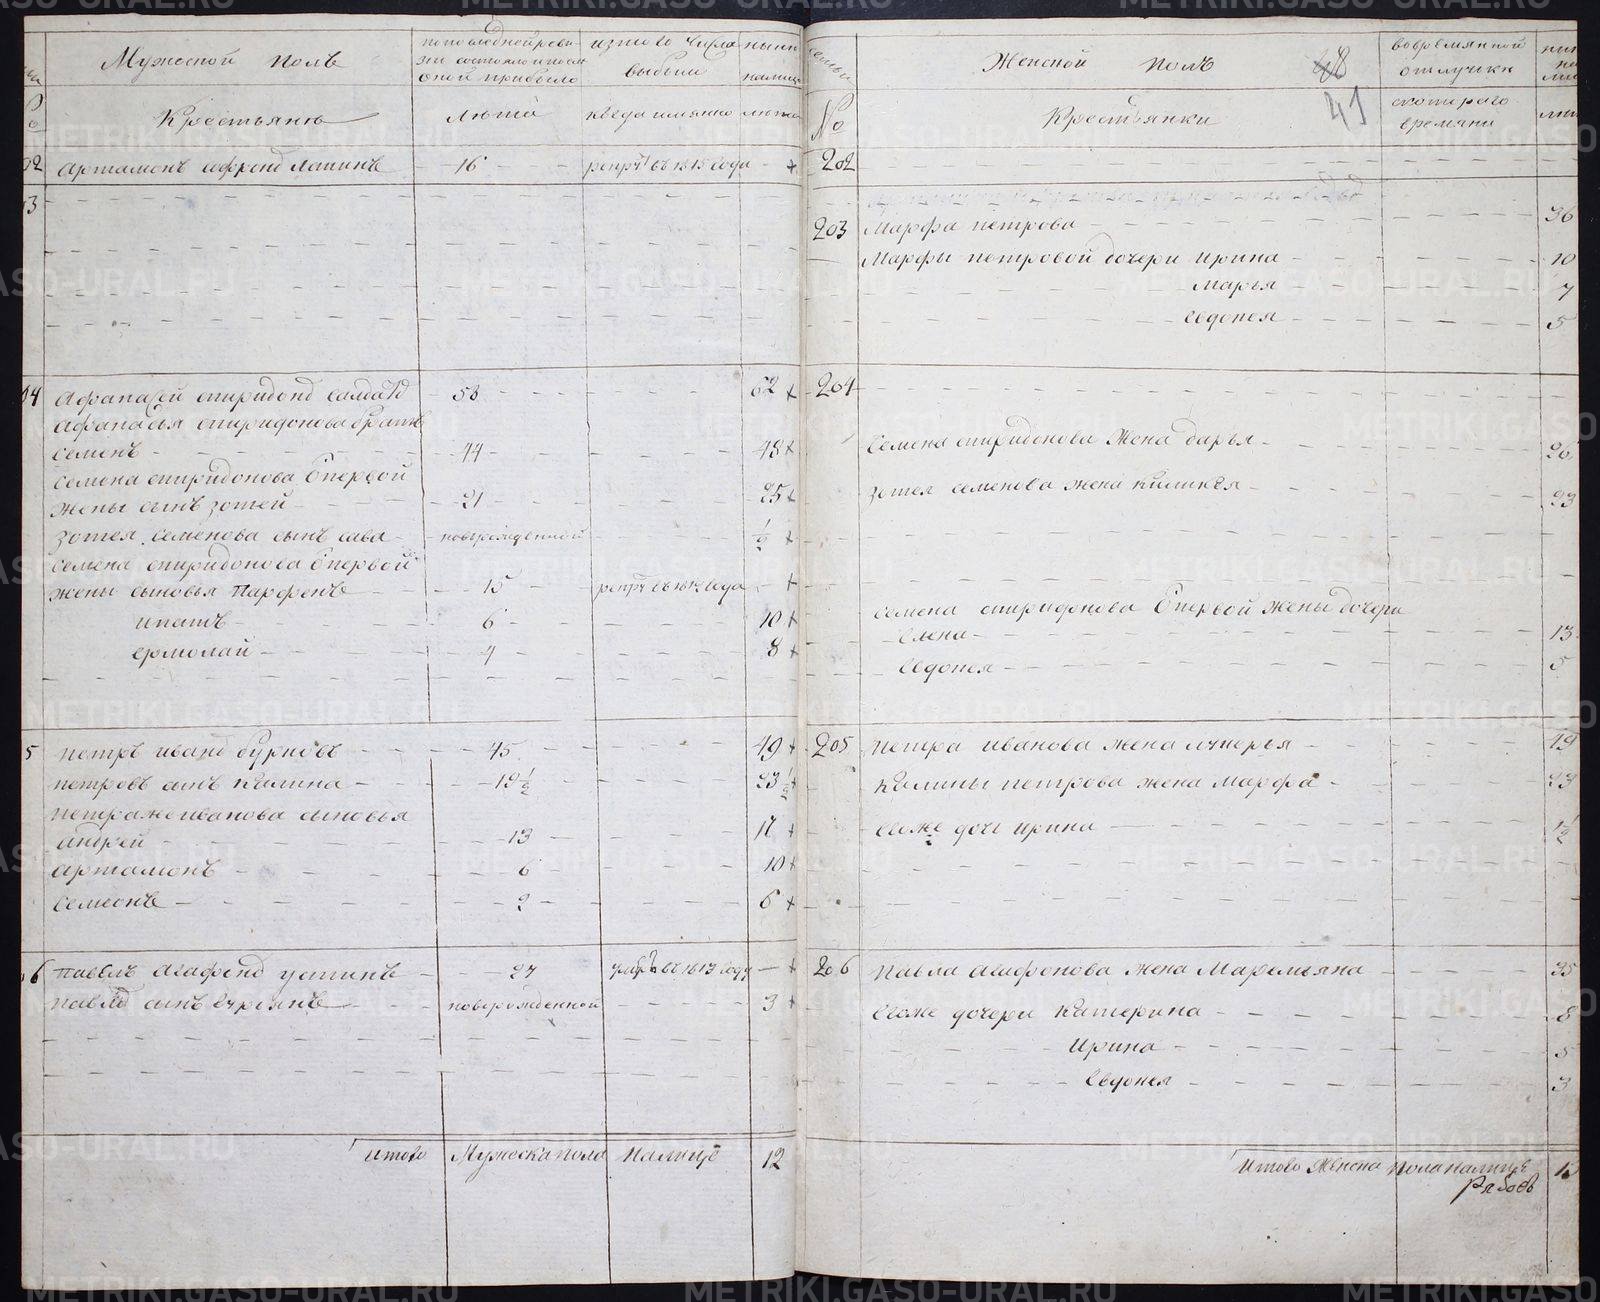 Мужеской полъ
по последней реви-
зіи состояло и после
оной прибыло
изтого числа
выбыли
ныне
налице
Крестьяне
лета
когда имянно
лета
02 Артамонъ афроно Лапинъ 16 рекрут въ 1815 года +
13
04 Афонасей спиридоно салдато 58 62 +
Афонасья спиридонова братъ
семенъ 44 48 +
семена спиридонова Спервой
жены сынъ зотей 21 25 +
зотея семенова сынъ сава новорожденной 1/2 +
семена спиридонова Спервой
жены сыновья Парфенъ 15 рекрут въ 1812 года +
ипатъ 6 10 +
ермолай 4 8 +
5 петръ ивано бурновъ 45 49 +
петровъ сынъ калина 19 1/2 23 1/2 +
петра же иванова сыновья
андрей 13 17 +
артамонъ 6 10 +
семионъ 2 6 +
06 павелъ Агафоно устинъ 27 умре въ 1813 году — +
павло сынъ Гурьянъ новорожденной 3 +
итого Мужеска пола Налице 12
семьи
Женской полъ
48
41
вовремянной
отлучки
ныне
на
лице
№
Крестьянки
скотораго
времяни
лета
202
203 Марфа петрова 36
Марфы петровой дочери ирина 10
Марья 7
Евдокея 5
204
Семена спиридонова Жена дарья 26
Зотея семенова жена киликея 23
Семена спиридонова Спервой жены дочери
Елена 13
Евдокея 5
205 петра иванова жена лукерья 49
калины петрова жена марфа 23
Егоже дочь ирина 1 1/2
206 Павла Агафонова жена Маремьяна 35
Егоже дочери Катерина 8
Ирина 5
Евдокея 3
Итого Женска пола налице
Рябовъ
METRIKI.GASO-URAL.RU